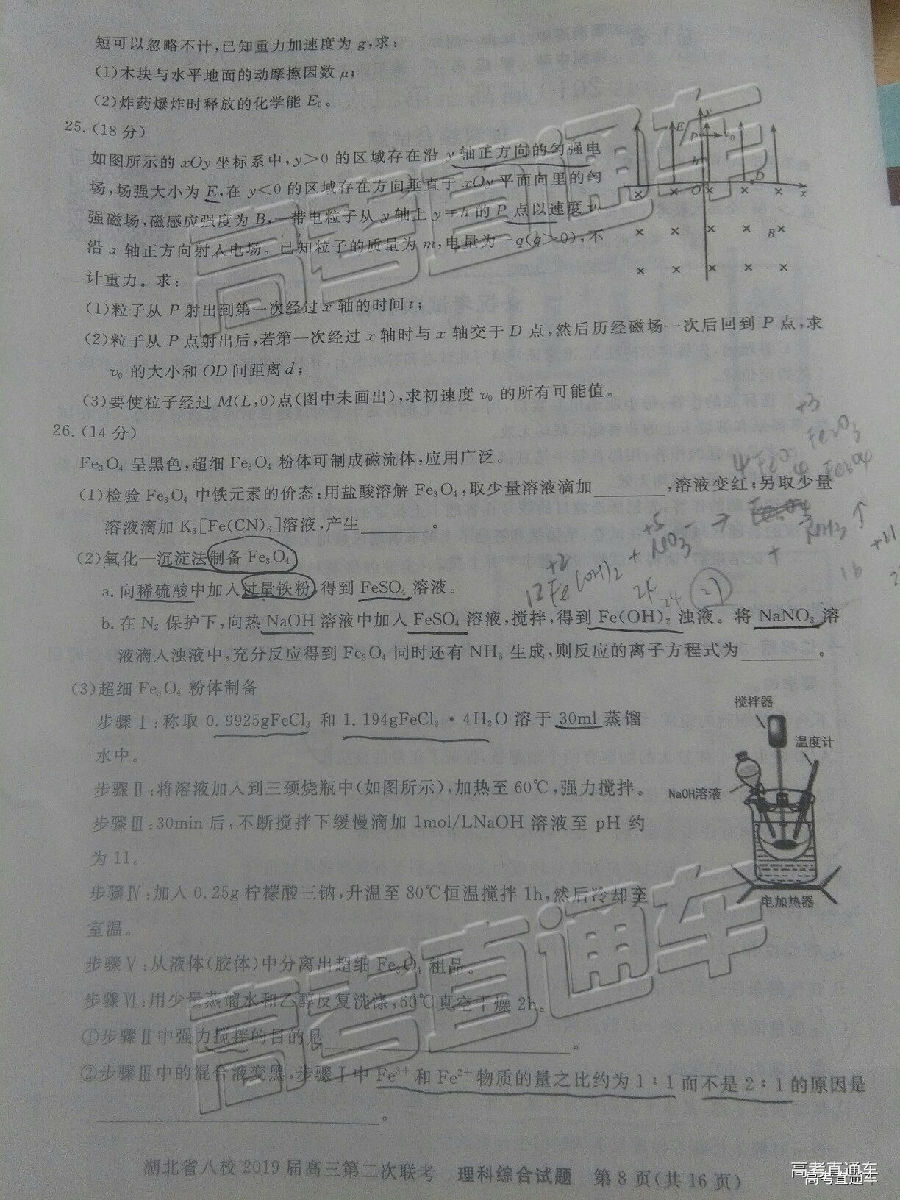 短可以忽略不计,已知重力加速度为 g,求:
(1)木块与水平地面的动摩擦因数 μ;
(2)炸药爆炸时释放的化学能 E₀。
25.(18 分)
如图所示的 xOy 坐标系中,y>0 的区域存在沿 y 轴正方向的匀强电
场,场强大小为 E,在 y<0 的区域存在方向垂直于 xOy 平面向里的匀
强磁场,磁感应强度为 B,一带电粒子从 y 轴上 y=h 的 P 点以速度
沿 x 轴正方向射入电场。已知粒子的质量为 m,电量为 -q(q>0),不
计重力。求:
(1)粒子从 P 射出到第一次经过 x 轴的时间 t;
(2)粒子从 P 点射出后,若第一次经过 x 轴时与 x 轴交于 D 点,然后历经磁场一次后回到 P 点,求
v₀ 的大小和 OD 间距离 d;
(3)要使粒子经过 M(L,0)点(图中未画出),求初速度 v₀ 的所有可能值。
y
E
P
v₀
h
O
D
x
B
26.(14 分)
Fe₃O₄ 呈黑色,超细 Fe₃O₄ 粉体可制成磁流体,应用广泛。
(1)检验 Fe₃O₄ 中铁元素的价态:用盐酸溶解 Fe₃O₄,取少量溶液滴加______,溶液变红;另取少量
溶液滴加 K₃[Fe(CN)₆]溶液,产生______。
(2)氧化—沉淀法制备 Fe₃O₄
a. 向稀硫酸中加入过量铁粉,得到 FeSO₄ 溶液。
b. 在 N₂ 保护下,向热 NaOH 溶液中加入 FeSO₄ 溶液,搅拌,得到 Fe(OH)₂ 浊液。将 NaNO₃ 溶
液滴入浊液中,充分反应得到 Fe₃O₄ 同时还有 NH₃ 生成,则反应的离子方程式为______。
+3
Fe₂O₃
4 FeO
Fe₃O₄
+2
12Fe(OH)₂ + NO₃⁻ →
+5
+ NH₃ ↑
24
24
(3)超细 Fe₃O₄ 粉体制备
步骤Ⅰ:称取 0.9925gFeCl₃ 和 1.194gFeCl₂·4H₂O 溶于 30ml 蒸馏
水中。
步骤Ⅱ:将溶液加入到三颈烧瓶中(如图所示),加热至 60℃,强力搅拌。
步骤Ⅲ:30min 后,不断搅拌下缓慢滴加 1mol/LNaOH 溶液至 pH 约
为 11。
步骤Ⅳ:加入 0.25g 柠檬酸三钠,升温至 80℃恒温搅拌 1h,然后冷却至
室温。
步骤Ⅴ:从液体(胶体)中分离出超细 Fe₃O₄ 粗品。
步骤Ⅵ:用少量蒸馏水和乙醇反复洗涤,50℃真空干燥 2h。
搅拌器
温度计
NaOH溶液
电加热器
①步骤Ⅱ中强力搅拌的目的是______。
②步骤Ⅲ中的混合液变黑,步骤Ⅰ中 Fe³⁺ 和 Fe²⁺ 物质的量之比约为 1:1 而不是 2:1 的原因是
______。
湖北省八校 2019 届高三第二次联考 理科综合试题 第 8 页(共 16 页)
高考直通车
高考直通车
高考直通车
高考直通车